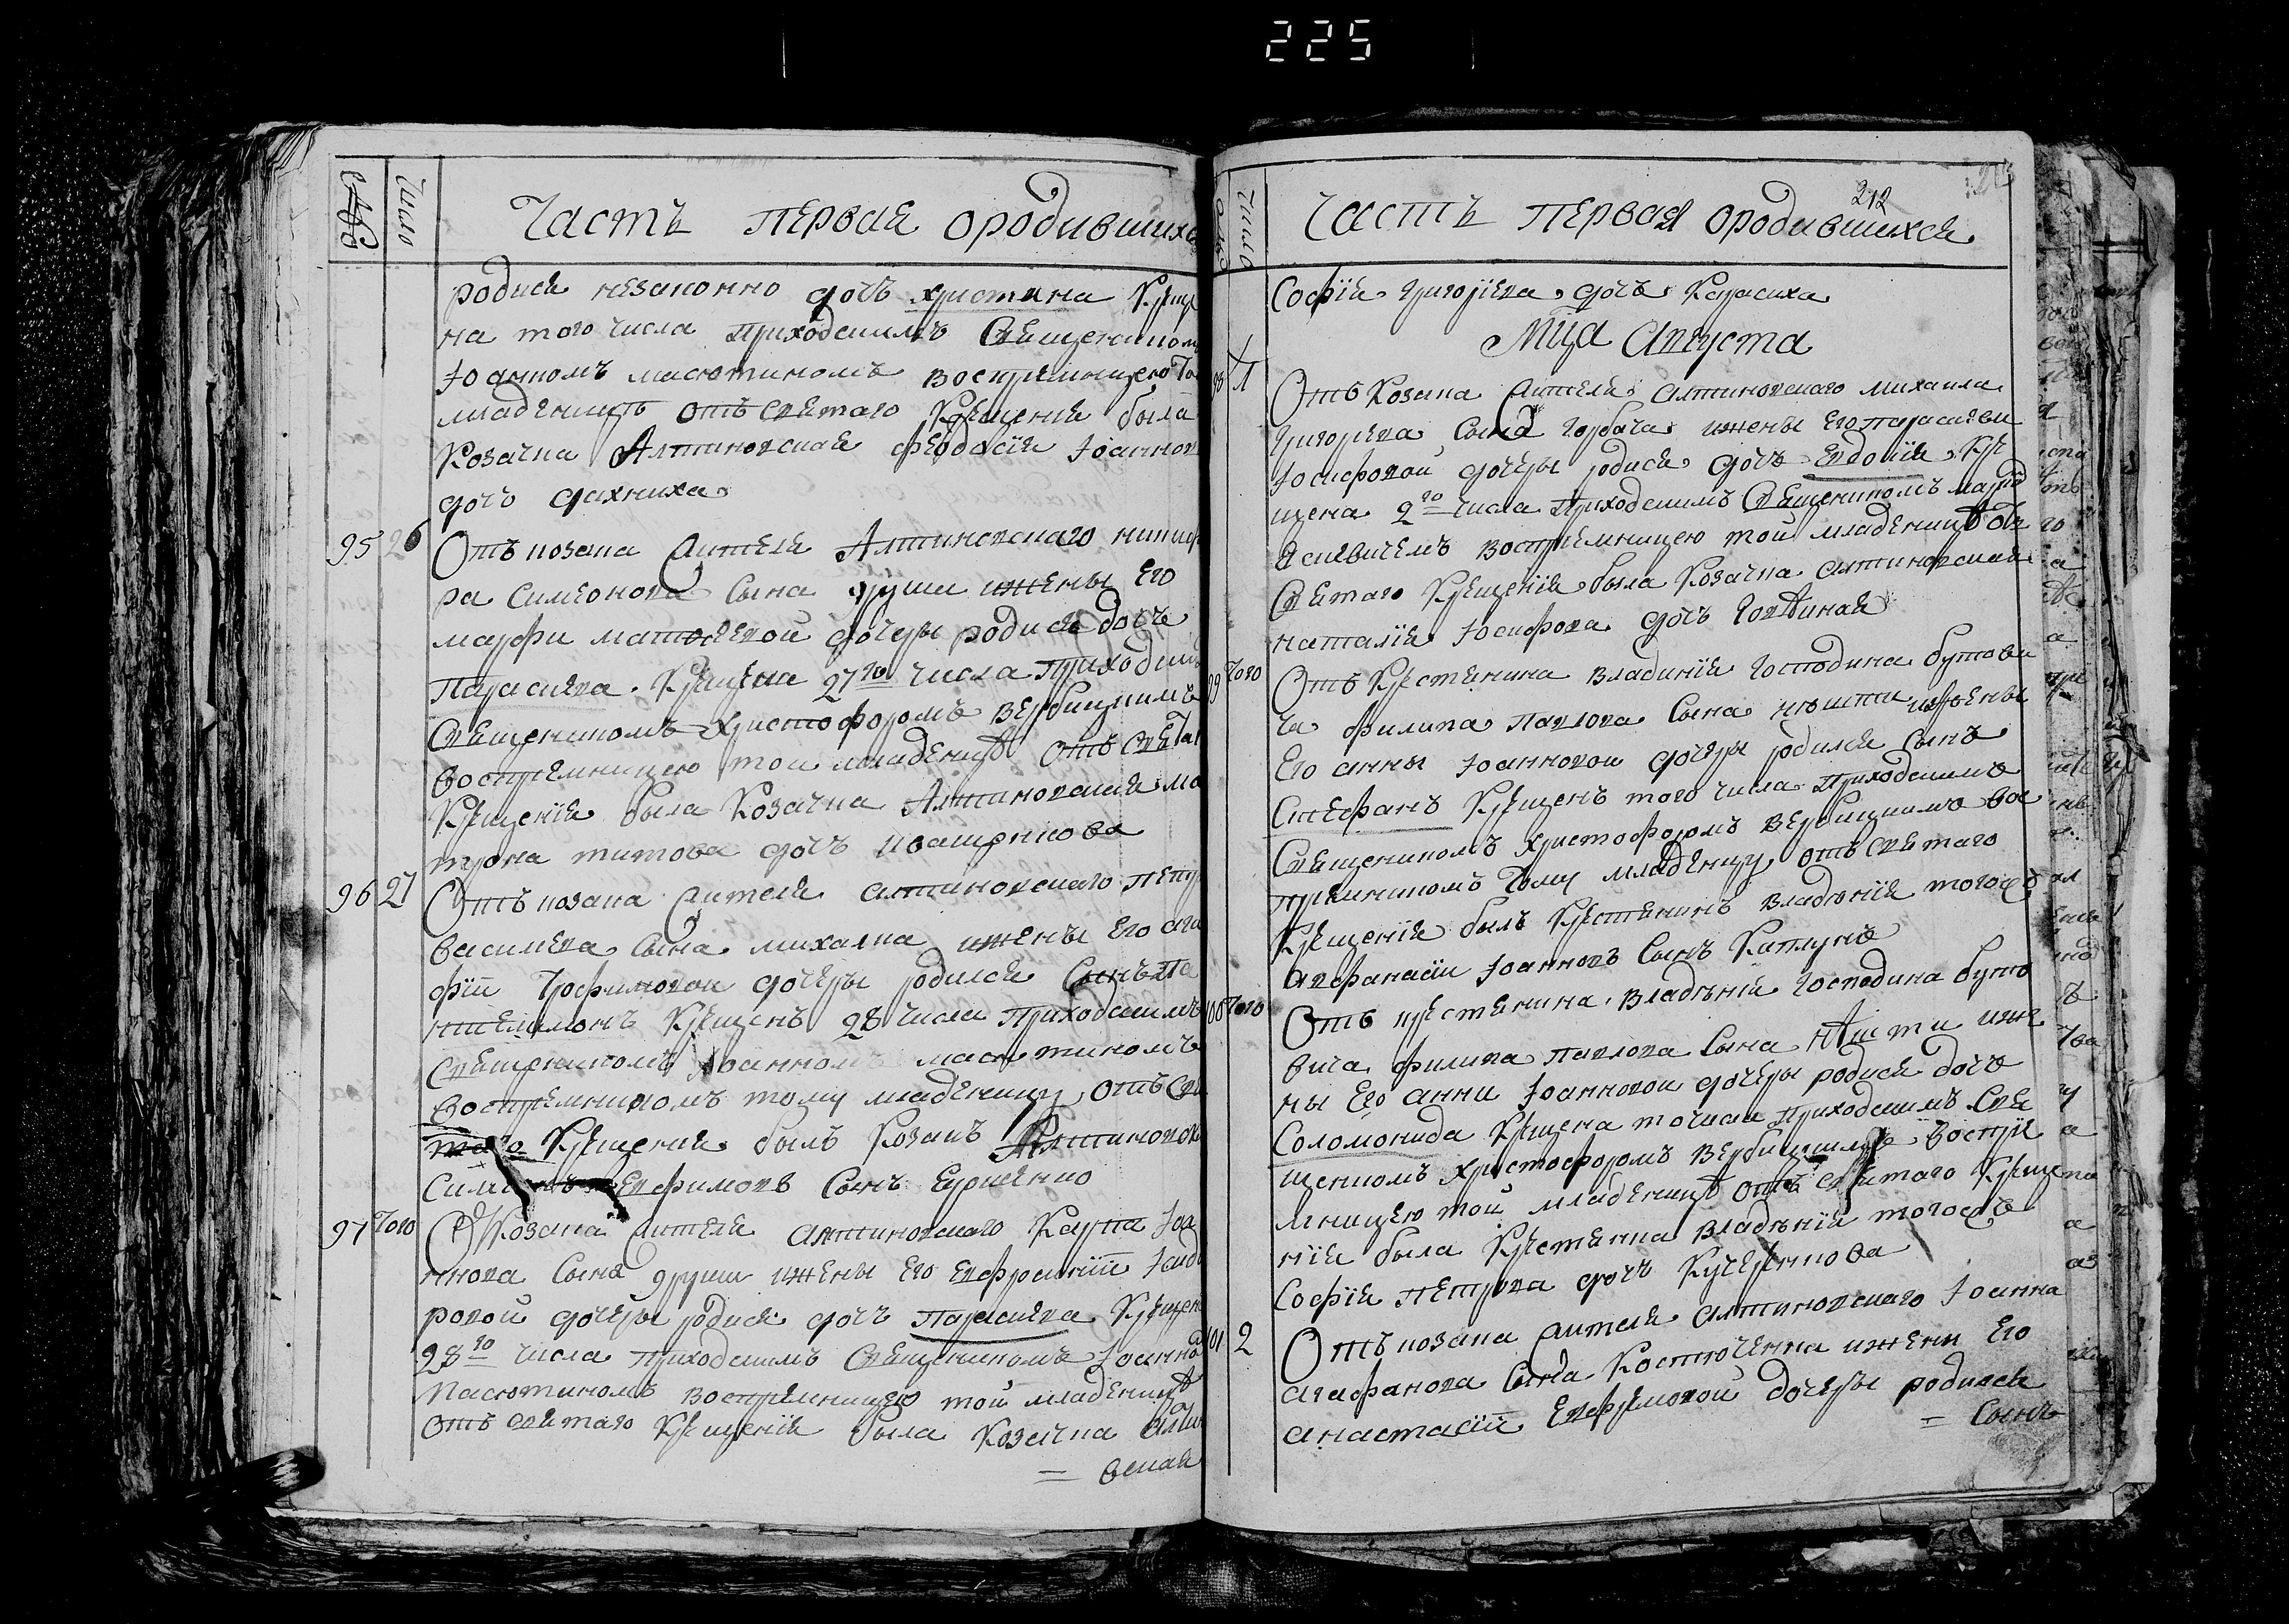 225
Число
Часть первая ородившихс
родися незаконно дочь христина Креще
на того числа приходскимъ Священником
Іоанномъ масютиномъ восприемницею То
младеницѣ отъ святаго Крещения была
Козачка Алтиновская феодосія Іоаннов
дочь дахниха
95 26
Отъ козака жителя Алтиновскаго никиф
ра симеонова Сына груши ижены Его
марфи матфеевой дочеры родися дочь
Параскева. Крещена 27го числа приходским
Священникомъ Христофоромъ Вербицкимъ
восприемницею той младеницѣ отъ свята
Крещенія была Козачка Алтиновская ма
трона титова дочь ивашенкова
96 27
Отъ козака жителя алтиновскаго петр
василиева сына михалка ижены Его ага
фіи Трофимовои дочеры родился Сынъ па
нтелимонъ Крещенъ 28 числа приходскимъ
священникомъ Іоанномъ масютиномъ
восприемникомъ тому младенцу отъ свя
таго Крещения былъ Козакъ Алтиновск
симеонъ Евфимовъ Сынъ Еременко
97 Того
От Козака жителя алтиновскаго Карпа Іоа
ннова Сына груши ижены Его Евфросиніи Ісид
ровой дочеры родися дочь Параскева Крещен
28го числа приходскимъ Священникомъ Іоанно
Масютиномъ восприемницею той младеницѣ
отъ святаго Крещенія была Козачка Алти
= вская
212
Число
Часть первая ородившихся
Софія Григоріева дочь Карасиха
Мца Августа
98 1
Отъ Козака жителя алтиновскаго михаила
григориева Сына горбача ижены Его параскеви
Іосифовой дочеры родися дочь Евдокія Кре
щена 2го числа приходскимъ Священникомъ
восприемницею той младеницѣ от
Святаго Крещенія была Козачка алтиновская
наталія Іосифова дочь
99 Того
Отъ Крестянина владинія Господина бутови
ча филипа павлова Сына ижены
Его анны Іоанновои дочеры родился сынъ
Стефанъ Крещенъ того числа приходскимъ
Священникомъ Христофоромъ Вербицкимъ вос
приемникомъ Тому младенцу отъ святаго
Крещенія былъ Крестянинъ владѣнія тогожъ
афанасіи Іоанновъ Сынъ Каплунъ
100 Того
Отъ крестянина владѣнія Господина буто
вича филипа павлова Сына иже
ны Его анни Іоанновои дочеры родися дочь
Соломонида Крещена точисла приходскимъ Свя
щенномъ Христофоромъ Вербицкимъ восприе
мницею той младеницѣ отъ святаго Креще
нія была Крестянка владѣнія тогожъ
Софія петрова дочь Кучеренкова
101 2
Отъ козака жителя алтиновскаго Іоанна
агафанова Сына Костюченка ижени Его
анастасіи Евфремовой дочеры родился
= Сынъ